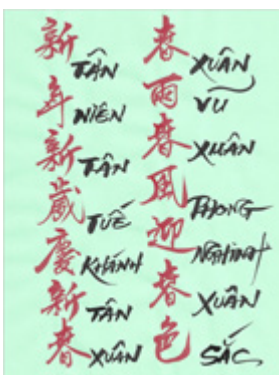 新 TÂN
年 NIÊN
新 TÂN
歲 TUẾ
慶 KHÁNH
新 TÂN
春 XUÂN
春 XUÂN
雨 VŨ
春 XUÂN
風 PHONG
迎 NGHINH
春 XUÂN
色 SẮC